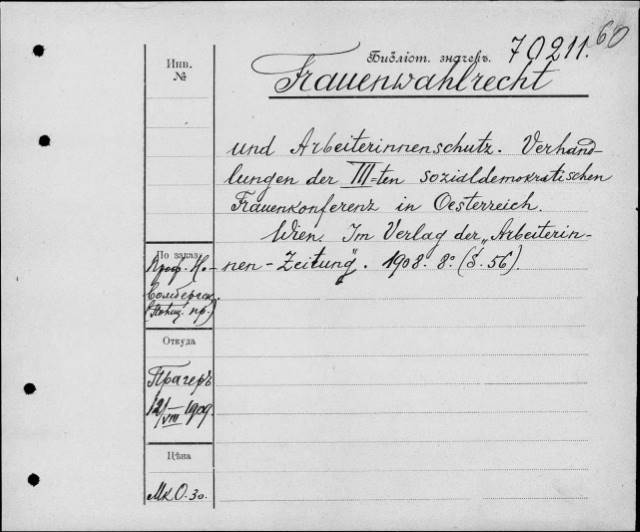 Инв.
№
Библіот. значеръ. 70211.60
Frauenwahlrecht
und Arbeiterinnenschutz. Verhand-
lungen der III=ten sozialdemokratischen
Frauenkonferenz in Oesterreich.
Wien. Im Verlag der „Arbeiterin-
nen-Zeitung". 1908. 8° (S. 56).
По заказу
Проф.
пр.)
Откуда
Прагеръ
12/VIII 1909.
Цѣна
Mk 0.30.